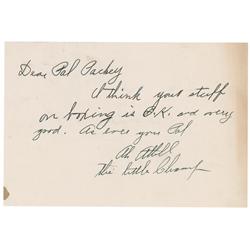 Dear Pal Packey
I think your stuff
on boxing is O.K. and very
good. As ever your Pal
Abe Attell
The little Champ